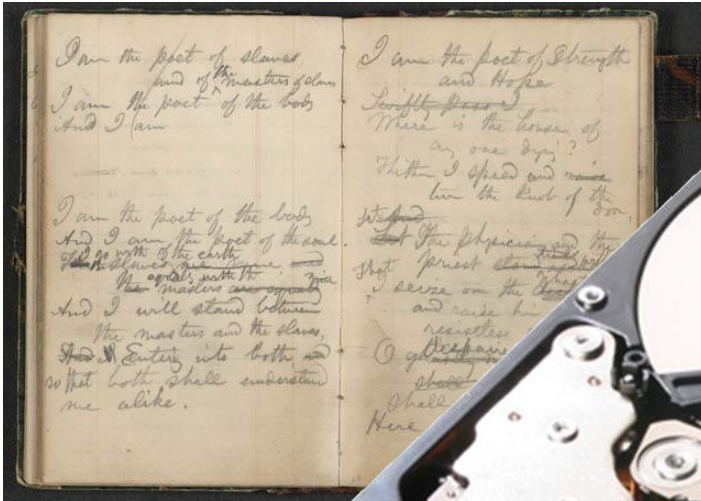 I am the poet of slaves,
and of the masters of slaves
I am the poet of the body
And I am
I am the poet of the body
And I am the poet of the soul
I go with the slaves of the earth
equally with the masters
And I will stand between
the masters and the slaves,
And I Entering into both and
so that both shall understand
me alike.
I am the poet of Strength
and Hope
Swiftly pass I
Where is the house of
any one dying?
Thither I speed and raise
turn the knob of the
door,
Let The physician and the
That priest
I seize on the
and raise him
resistless
O
Despairer
shall
shall
Here